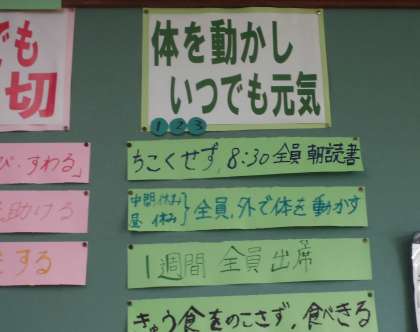 でも
切
体を動かし
いつでも元気
1 2 3
び・すわる」
助ける
する
ちこくせず、8:30 全員 朝読書
中間休み
昼 休み } 全員、外で体を動かす
1週間 全員 出席
きゅう食をのこさず、食べきる